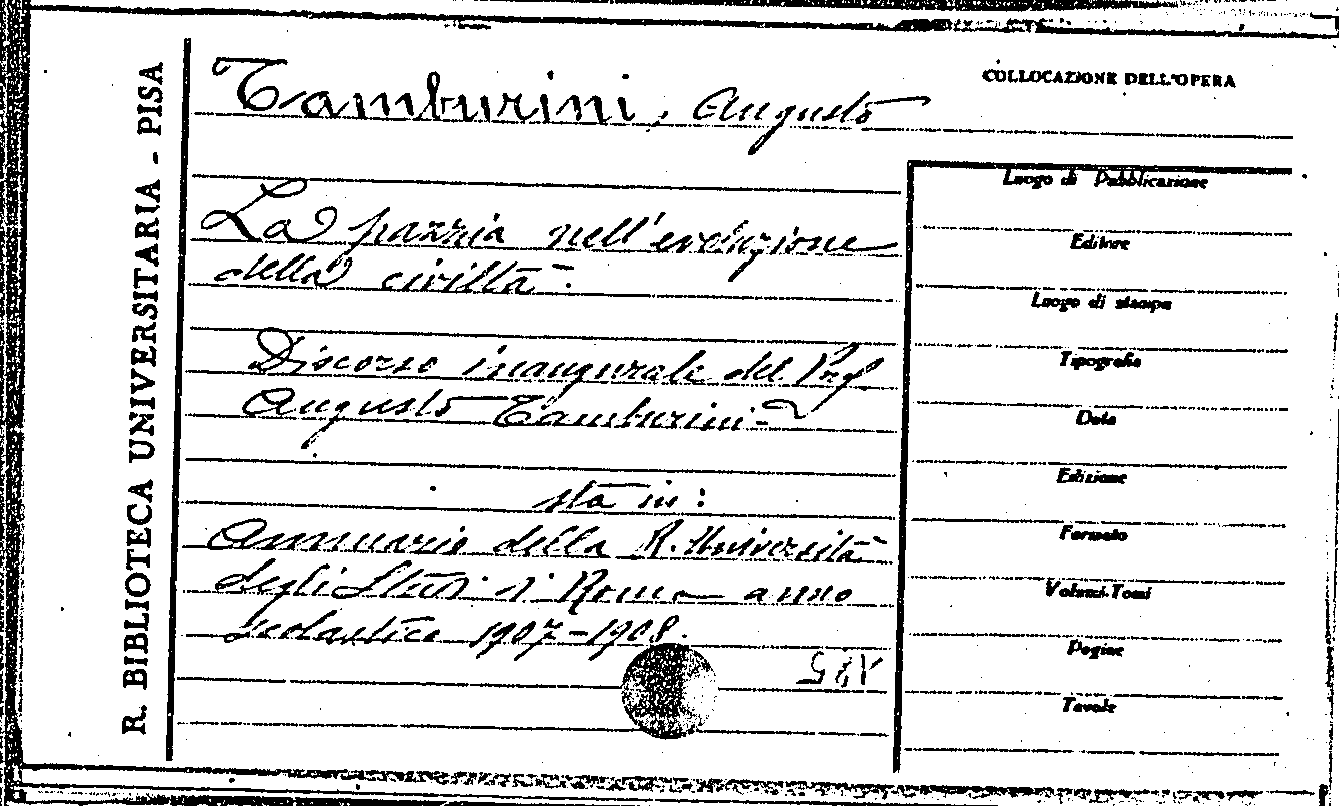 R. BIBLIOTECA UNIVERSITARIA - PISA
COLLOCAZIONE DELL'OPERA
Tamburini, Augusto
La pazzia nell'evoluzione
della civiltà.
Discorso inaugurale del Prof
Augusto Tamburini -
sta in:
Annuario della R. Università
degli Studi di Roma anno
scolastico 1907-1908.
Luogo di Pubblicazione
Editore
Luogo di stampa
Tipografia
Data
Edizione
Formato
Volumi-Tomi
Pagine
Tavole